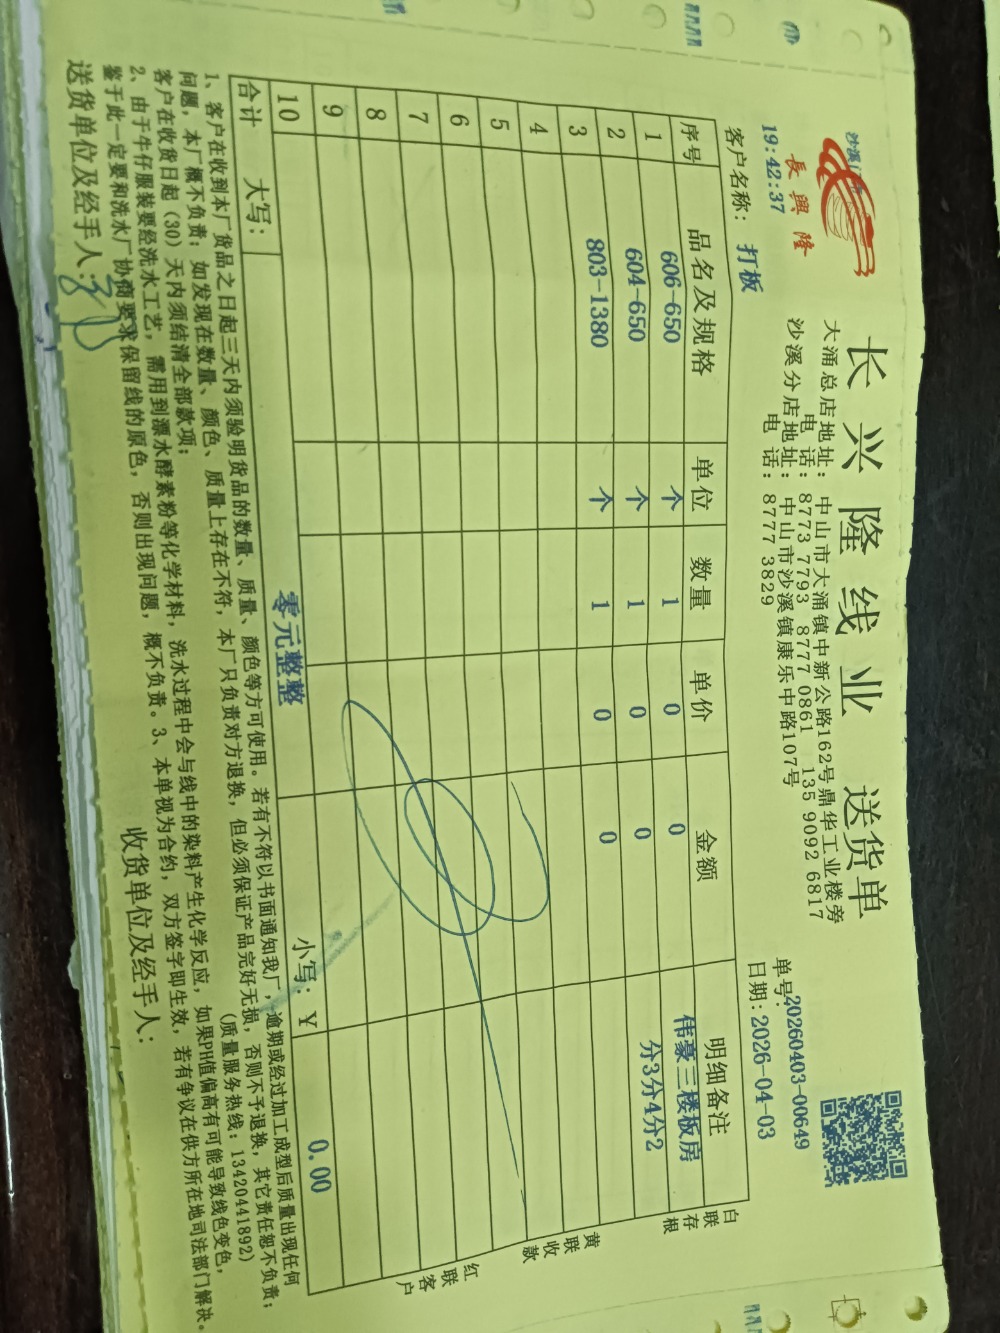 長興隆
长兴隆线业 送货单
大涌总店地址: 中山市大涌镇中新公路162号鼎华工业楼旁
电话: 8773 7793 8777 0861 135 9092 6817
沙溪分店地址: 中山市沙溪镇康乐中路107号
电话: 8777 3829
19:42:37
单号: 20260403-00649
客户名称: 打板
日期: 2026-04-03
序号 品名及规格 单位 数量 单价 金额 明细备注
1 606-650 个 1 0 0 伟豪三楼板房
2 604-650 个 1 0 0 分3分4分2
3 803-1380 个 1 0 0
4
5
6
7
8
9
10
合计 大写: 零元整整 小写: ¥ 0.00
白联存根
黄联收款
红联客户
1、客户在收到本厂货品之日起三天内须验明货品的数量、质量、颜色等方可使用。若有不符以书面通知我厂,逾期或经过加工成型后质量出现任何
问题,本厂概不负责;如发现在数量、颜色、质量上存在不符,本厂只负责对方退换,但必须保证产品完好无损,否则不予退换,其它责任恕不负责;
客户在收货日起(30)天内须结清全部款项; (质量服务热线:13420441892)
2、由于牛仔服装要经洗水工艺,需用到漂水酵素粉等化学材料,洗水过程中会与线中的染料产生化学反应,如果PH值偏高有可能导致线色变色,
鉴于此一定要和洗水厂协商要求保留线的原色,否则出现问题,概不负责。3、本单视为合约,双方签字即生效,若有争议在供方所在地司法部门解决。
送货单位及经手人: 收货单位及经手人: